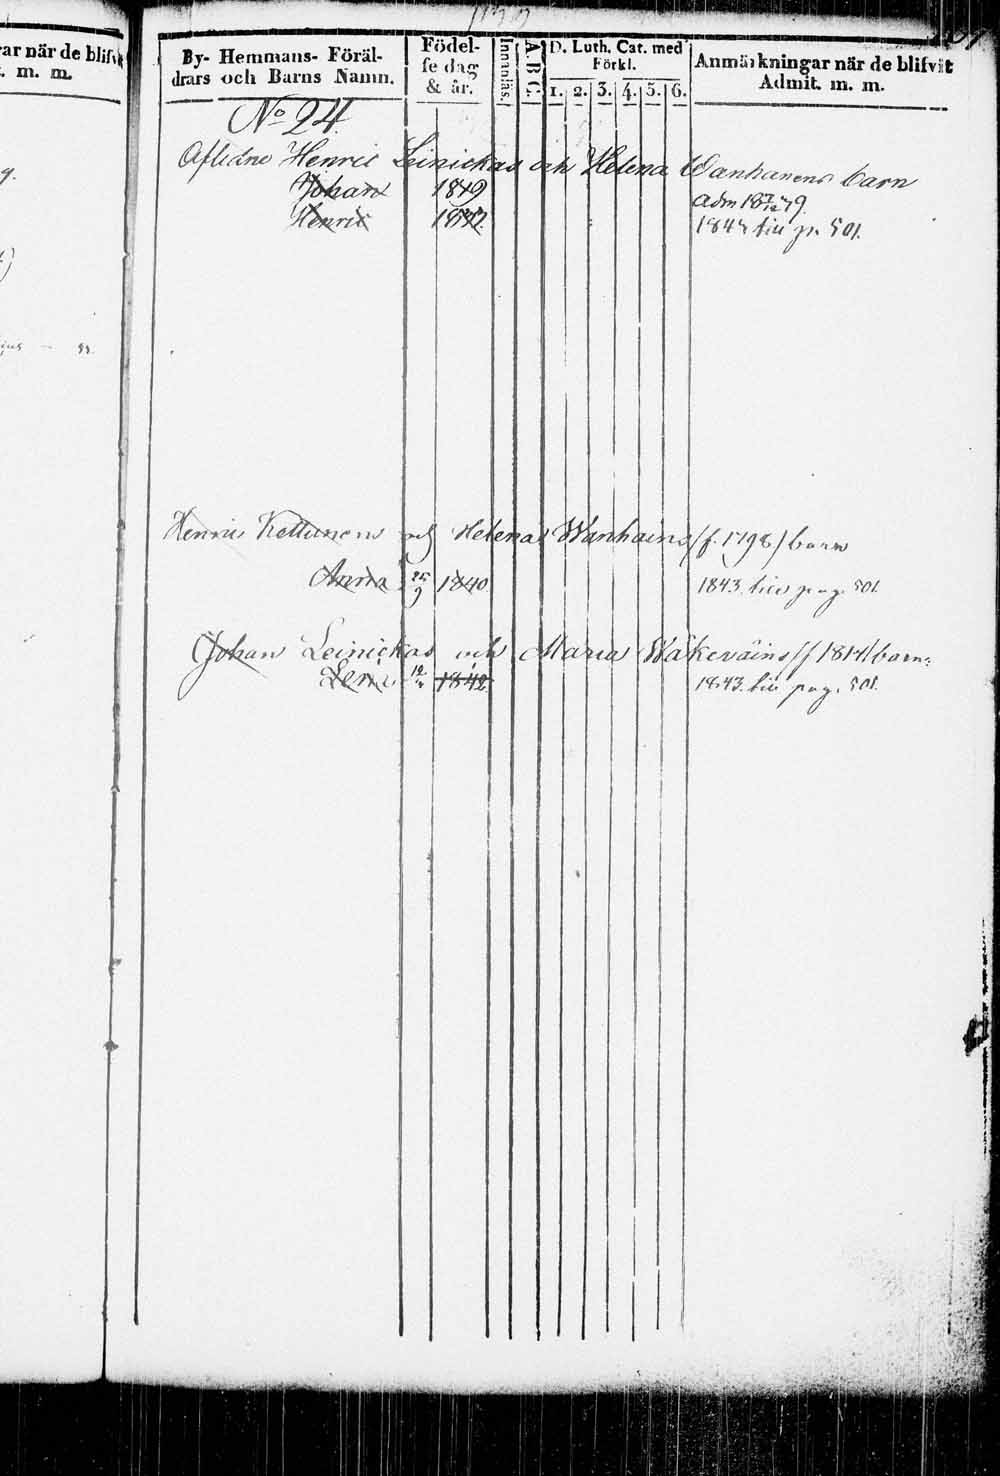 ar när de blifvit
. m. m.
By- Hemmans- Föräl-
drars och Barns Namn.
Födel-
se dag
& år.
Innanläs.
A. B. C.
D. Luth. Cat. med
Förkl.
1. 2. 3. 4. 5. 6.
Anmärkningar när de blifvit
Admit. m. m.
No 24.
Aflidne Henric Leinickas och Helena Wanhanens barn
Johan 1819 adm
Henric 1843 till p. 501.
Henric Kettunens och Helena Wanhains (f. 1798) barn
Anna 25/9 1840 1843 till pag. 501.
Johan Leinickas och Maria Wäkeväins (f 1817) barn:
Lena 1842 1843. till pag. 501.